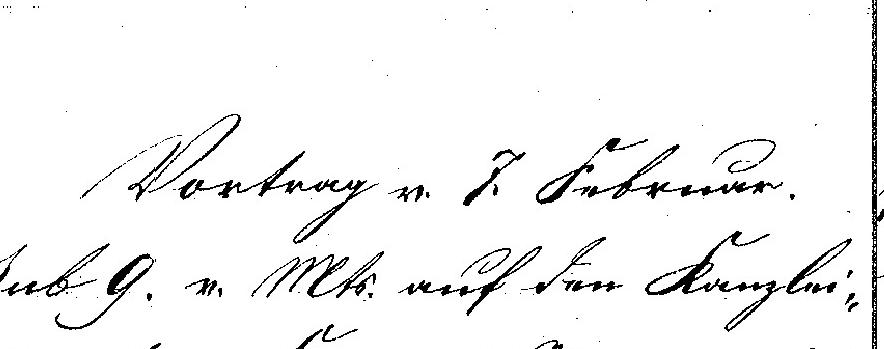 Vortrag v. 7. Februar.
sub 9. v. Mts. auf den Kanzlei-